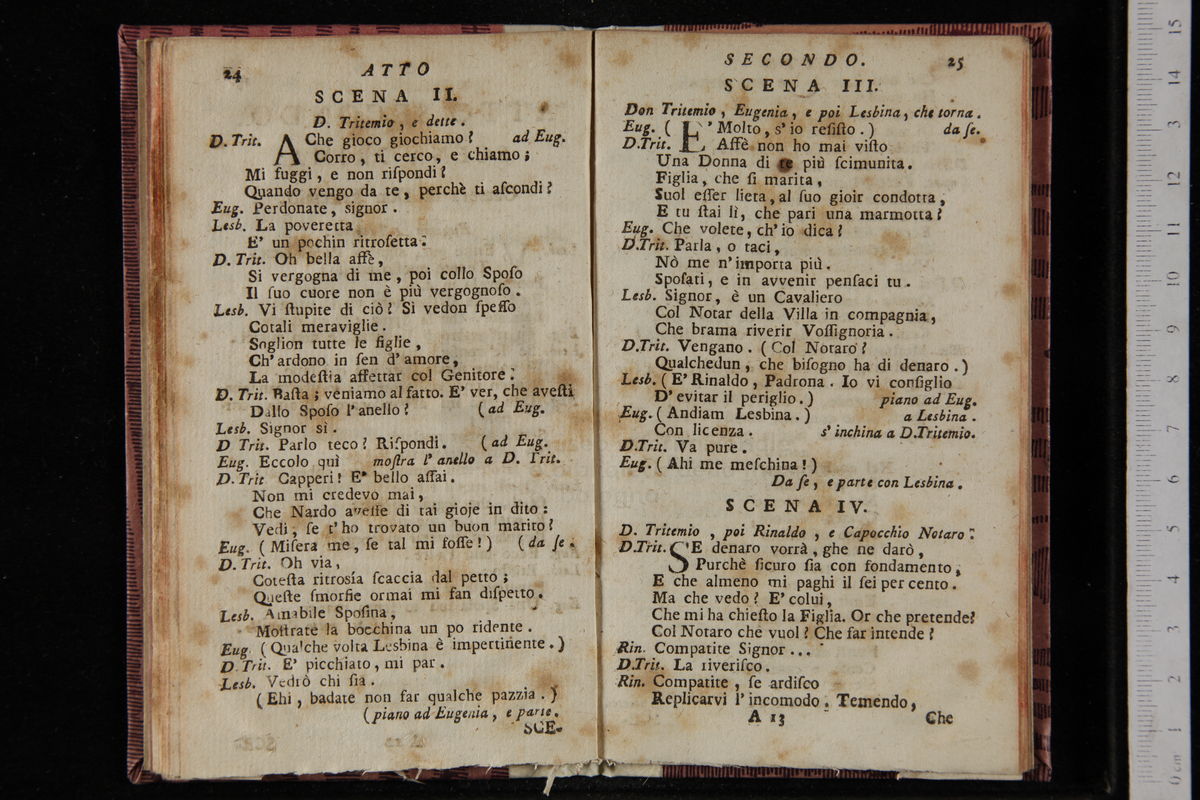 24
ATTO
SCENA II.
D. Tritemio, e dette.
D. Trit. A Che gioco giochiamo? ad Eug.
Corro, ti cerco, e chiamo;
Mi fuggi, e non riſpondi?
Quando vengo da te, perchè ti aſcondi?
Eug. Perdonate, signor.
Lesb. La poveretta
E' un pochin ritroſetta.
D. Trit. Oh bella affè,
Si vergogna di me, poi collo Spoſo
Il ſuo cuore non è più vergognoſo.
Lesb. Vi ſtupite di ciò? Si vedon ſpeſſo
Cotali meraviglie.
Soglion tutte le figlie,
Ch' ardono in ſen d' amore,
La modeſtia affettar col Genitore.
D. Trit. Baſta; veniamo al fatto. E' ver, che aveſti
Dallo Spoſo l' anello? (ad Eug.
Lesb. Signor sì.
D Trit. Parlo teco? Riſpondi. (ad Eug.
Eug. Eccolo quì moſtra l' anello a D. Trit.
D. Trit Capperi! E' bello aſſai.
Non mi credevo mai,
Che Nardo aveſſe di tai gioje in dito:
Vedi, ſe t' ho trovato un buon marito?
Eug. (Miſera me, ſe tal mi foſſe!) (da ſe.
D. Trit. Oh via,
Coteſta ritrosía ſcaccia dal petto;
Queſte ſmorfie ormai mi fan diſpetto.
Lesb. Amabile Spoſina,
Moſtrate la bocchina un po ridente.
Eug. (Qualche volta Lesbina è impertinente.)
D. Trit. E' picchiato, mi par.
Lesb. Vedrò chi ſia.
(Ehi, badate non far qualche pazzia.)
(piano ad Eugenia, e parte.
SCE-
SECONDO.
25
SCENA III.
Don Tritemio, Eugenia, e poi Lesbina, che torna.
Eug. ( E' Molto, s' io reſiſto.) da ſe.
D.Trit. Affè non ho mai viſto
Una Donna di te più ſcimunita.
Figlia, che ſi marita,
Suol eſſer lieta, al ſuo gioir condotta,
E tu ſtai lì, che pari una marmotta?
Eug. Che volete, ch' io dica?
D.Trit. Parla, o taci,
Nò me n' importa più.
Spoſati, e in avvenir penſaci tu.
Lesb. Signor, è un Cavaliero
Col Notar della Villa in compagnia,
Che brama riverir Voſſignoria.
D.Trit. Vengano. (Col Notaro?
Qualchedun, che biſogno ha di denaro.)
Lesb. (E' Rinaldo, Padrona. Io vi conſiglio
D' evitar il periglio.) piano ad Eug.
Eug. (Andiam Lesbina.) a Lesbina.
Con licenza. s' inchina a D.Tritemio.
D.Trit. Va pure.
Eug. (Ahi me meſchina!)
Da ſe, e parte con Lesbina.
SCENA IV.
D. Tritemio, poi Rinaldo, e Capocchio Notaro.
D.Trit. SE denaro vorrà, ghe ne darò,
Purchè ſicuro ſia con fondamento,
E che almeno mi paghi il ſei per cento.
Ma che vedo? E' colui,
Che mi ha chieſto la Figlia. Or che pretende?
Col Notaro che vuol? Che far intende?
Rin. Compatite Signor...
D.Trit. La riveriſco.
Rin. Compatite, ſe ardiſco
Replicarvi l' incomodo. Temendo,
A 13
Che